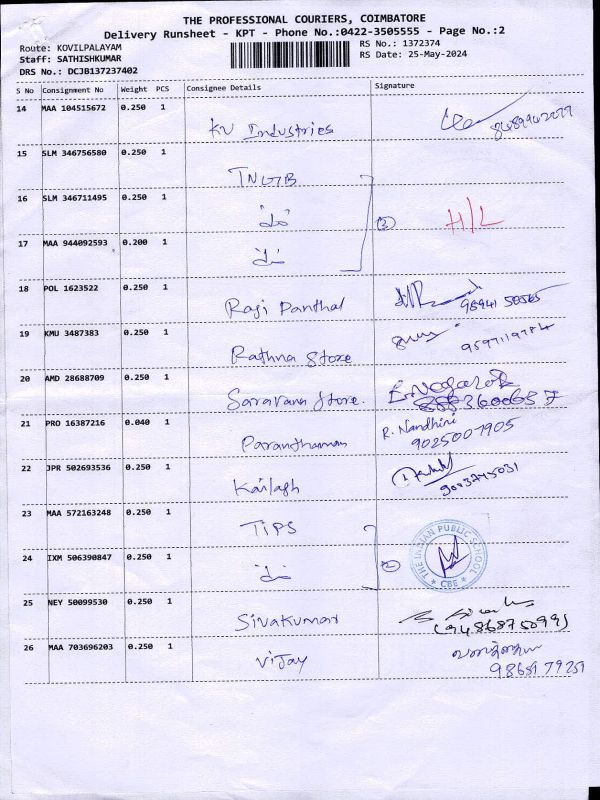 THE PROFESSIONAL COURIERS, COIMBATORE
Delivery Runsheet - KPT - Phone No.:0422-3505555 - Page No.:2
Route: KOVILPALAYAM
Staff: SATHISHKUMAR
DRS No.: DCJB137237402
RS No.: 1372374
RS Date: 25-May-2024
S No Consignment No Weight PCS Consignee Details Signature
14 MAA 104515672 0.250 1
KV Industries
15 SLM 346756580 0.250 1
TNGB
16 SLM 346711495 0.250 1
H/L
17 MAA 944092593 0.200 1
18 POL 1623522 0.250 1
Raji Panthal
19 KMU 3487383 0.250 1
Rathna Store
20 AMD 28688709 0.250 1
Saravana Store.
21 PRO 16387216 0.040 1
Paranthaman
R. Nandhini
9025007905
22 JPR 502693536 0.250 1
Kailash
9003745031
23 MAA 572163248 0.250 1
TIPS
THE INDIAN PUBLIC SCHOOL
* CBE *
24 IXM 506390847 0.250 1
25 NEY 50099530 0.250 1
Sivakumar
(9486875099)
26 MAA 703696203 0.250 1
Vijay